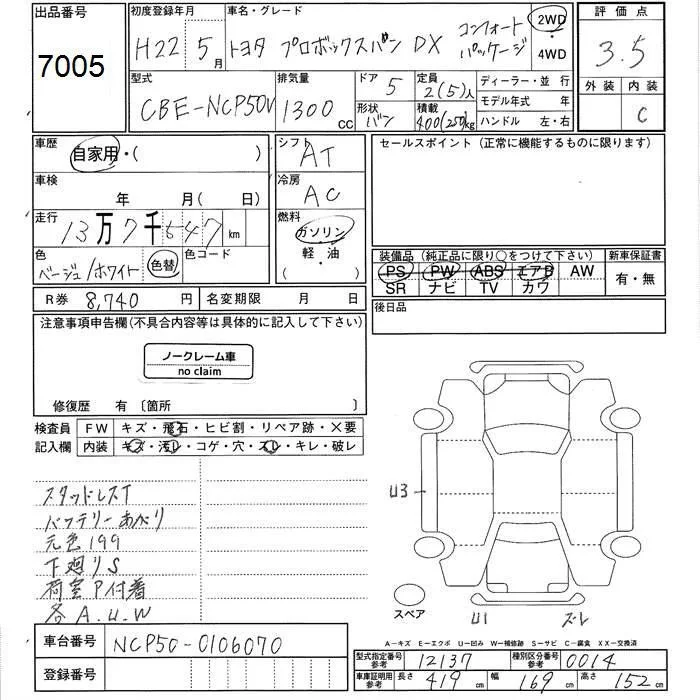 出品番号
7005
初度登録年月
H22 5月
車名・グレード
トヨタ プロボックスバン DX コンフォートパッケージ
2WD
4WD
評価点
3.5
外装 内装
C
型式
CBE-NCP50V
排気量
1300 CC
ドア 5
形状 バン
定員 2(5)人
積載 400(250)kg
ディーラー・並行
モデル年式 年
ハンドル 左・右
車歴
自家用・( )
シフト AT
車検
年 月( 日)
冷房 AC
走行
13万7千547km
燃料
ガソリン
・軽・油
( )
色
ベージュ/ホワイト
色替
色コード
R券 8,740 円
名変期限 月 日
セールスポイント(正常に機能するものに限ります)
装備品(純正品に限り○をつけて下さい)
PS PW ABS エアB AW
SR ナビ TV カワ
新車保証書
有・無
後日品
注意事項申告欄(不具合内容等は具体的に記入して下さい)
ノークレーム車
no claim
修復歴 有〔箇所 〕
検査員記入欄
FW キズ・飛石・ヒビ割・リペア跡・×要
内装 キズ・汚レ・コゲ・穴・スレ・キレ・破レ
スタッドレスT
バッテリーあがり
元色199
下廻りS
荷室P付着
各A.U.W
U3
スペア
U1
ズレ
A-キズ E-エクボ U-凹み W-補修跡 S-サビ C-腐食 XX-交換済
車台番号 NCP50-0106070
登録番号
型式指定番号参考 12137
種別区分番号参考 0014
車庫証明用参考 長さ 419cm 幅 169cm 高さ 152cm